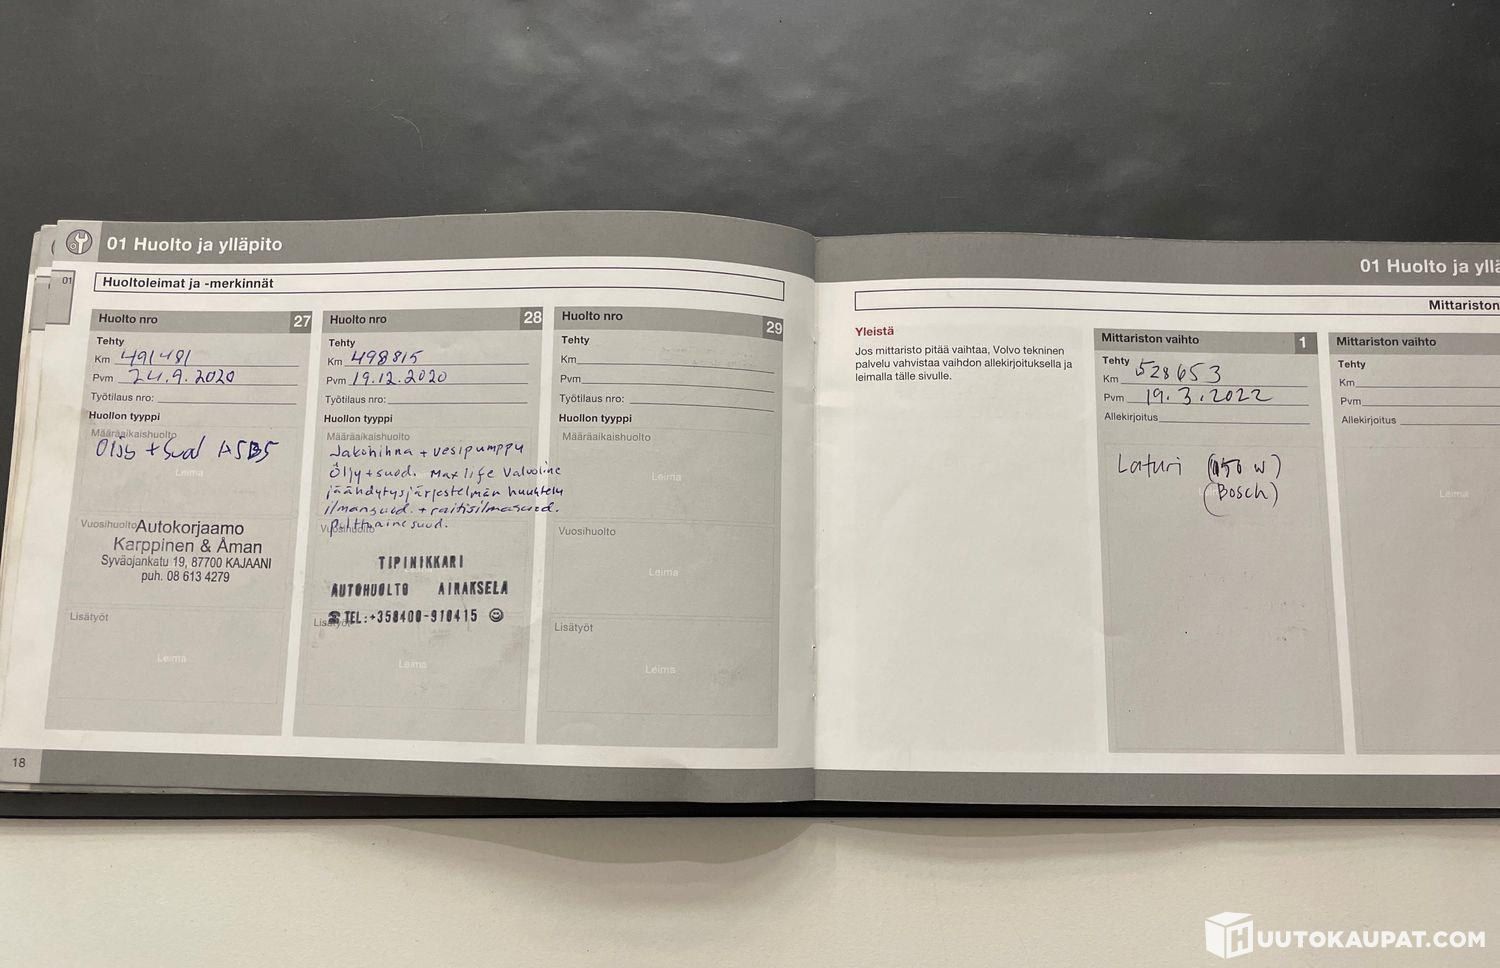 01 Huolto ja ylläpito
01
Huoltoleimat ja -merkinnät
Huolto nro 27
Tehty
Km 491481
Pvm 24.9.2020
Työtilaus nro:
Huollon tyyppi
Määräaikaishuolto
Öljy + suod A5B5
Leima
Vuosihuolto
Autokorjaamo
Karppinen & Åman
Syväojankatu 19, 87700 KAJAANI
puh. 08 613 4279
Lisätyöt
Leima
Huolto nro 28
Tehty
Km 498815
Pvm 19.12.2020
Työtilaus nro:
Huollon tyyppi
Määräaikaishuolto
Jakohihna + vesipumppu
Öljy + suod. Maxlife Valvoline
jäähdytysjärjestelmän huuhtelu
ilmansuod. + raitisilmasuod.
polttoainesuod.
Vuosihuolto
TIPINIKKARI
AUTOHUOLTO AIRAKSELA
☎TEL:+358400-910415 ☺
Lisätyöt
Leima
Huolto nro 29
Tehty
Km
Pvm
Työtilaus nro:
Huollon tyyppi
Määräaikaishuolto
Leima
Vuosihuolto
Leima
Lisätyöt
Leima
18
01 Huolto ja yllä
Mittariston
Yleistä
Jos mittaristo pitää vaihtaa, Volvo tekninen
palvelu vahvistaa vaihdon allekirjoituksella ja
leimalla tälle sivulle.
Mittariston vaihto 1
Tehty
Km 528653
Pvm 19.3.2022
Allekirjoitus
Laturi (150 W)
(Bosch)
Mittariston vaihto
Tehty
Km
Pvm
Allekirjoitus
Leima
HUUTOKAUPAT.COM